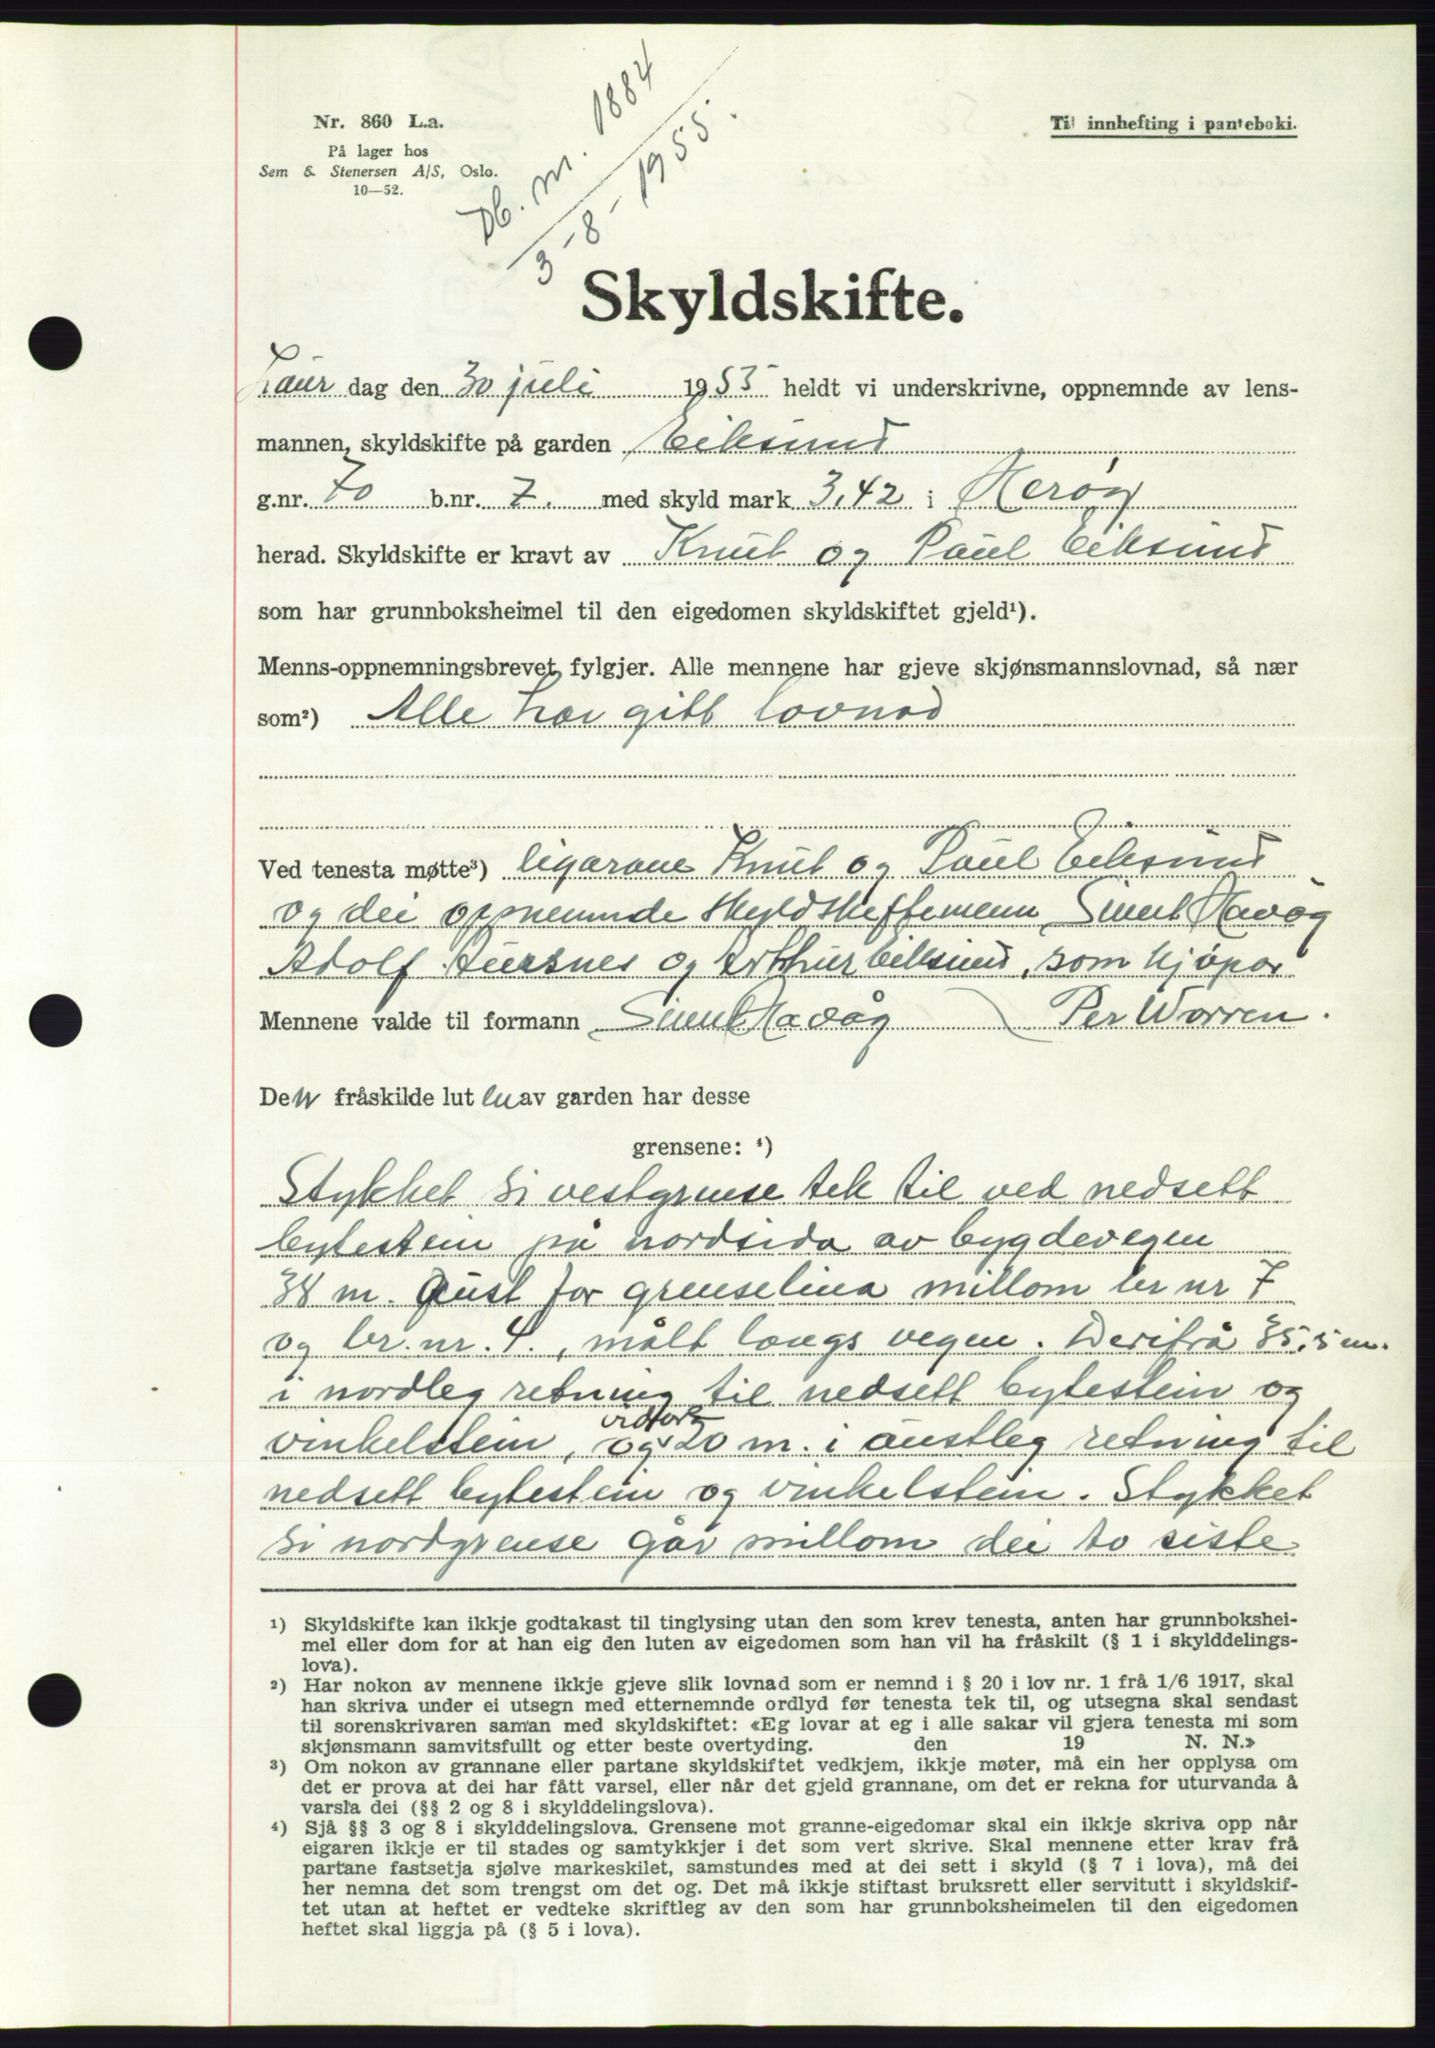 Nr. 860 L.a.
På lager hos
Sem & Stenersen A/S, Oslo.
10—52.
Til innhefting i panteboki.
Db. nr. 1884
3-8-1955.
Skyldskifte.
Laur dag den 30 juli 1955 heldt vi underskrivne, oppnemnde av lens-
mannen, skyldskifte på garden Eiksund
g.nr. 70 b.nr. 7. med skyld mark 3,42 i Herøy
herad. Skyldskifte er kravt av Knut og Paul Eiksund
som har grunnboksheimel til den eigedomen skyldskiftet gjeld¹).
Menns-oppnemningsbrevet fylgjer. Alle mennene har gjeve skjønsmannslovnad, så nær
som²) Alle har gitt lovnad
Ved tenesta møtte³) eigarane Knut og Paul Eiksund
og dei oppnemnde skyldskiftemenn Simut Havåg
Adolf Aursnes og Arthur Eiksund, som kjøpar
Mennene valde til formann Simut Havåg Per Worren.
Den fråskilde luten av garden har desse
grensene: ⁴)
Stykket si vestgrense tek til ved nedsett
bytestein på nordsida av bygdevegen
38 m. Aust for grenselina millom br nr 7
og br. nr. 4., målt langs vegen. Derifrå 35,5 m.
i nordleg retning til nedsett bytestein og
vinkelstein, og vidare 20 m. i austleg retning til
nedsett bytestein og vinkelstein. Stykket
si nordgrense går millom dei to siste
¹) Skyldskifte kan ikkje godtakast til tinglysing utan den som krev tenesta, anten har grunnbokshei-
mel eller dom for at han eig den luten av eigedomen som han vil ha fråskilt (§ 1 i skylddelings-
lova).
²) Har nokon av mennene ikkje gjeve slik lovnad som er nemnd i § 20 i lov nr. 1 frå 1/6 1917, skal
han skriva under ei utsegn med etternemnde ordlyd før tenesta tek til, og utsegna skal sendast
til sorenskrivaren saman med skyldskiftet: «Eg lovar at eg i alle sakar vil gjera tenesta mi som
skjønsmann samvitsfullt og etter beste overtyding. den 19 N. N.»
³) Om nokon av grannane eller partane skyldskiftet vedkjem, ikkje møter, må ein her opplysa om
det er prova at dei har fått varsel, eller når det gjeld grannane, om det er rekna for uturvanda å
varsla dei (§§ 2 og 8 i skylddelingslova).
⁴) Sjå §§ 3 og 8 i skylddelingslova. Grensene mot granne-eigedomar skal ein ikkje skriva opp når
eigaren ikkje er til stades og samtykkjer i det som vert skrive. Skal mennene etter krav frå
partane fastsetja sjølve markeskilet, samstundes med at dei sett i skyld (§ 7 i lova), må dei
her nemna det som trengst om det og. Det må ikkje stiftast bruksrett eller servitutt i skyldskif-
tet utan at heftet er vedteke skriftleg av den som har grunnboksheimelen til den eigedomen
heftet skal liggja på (§ 5 i lova).